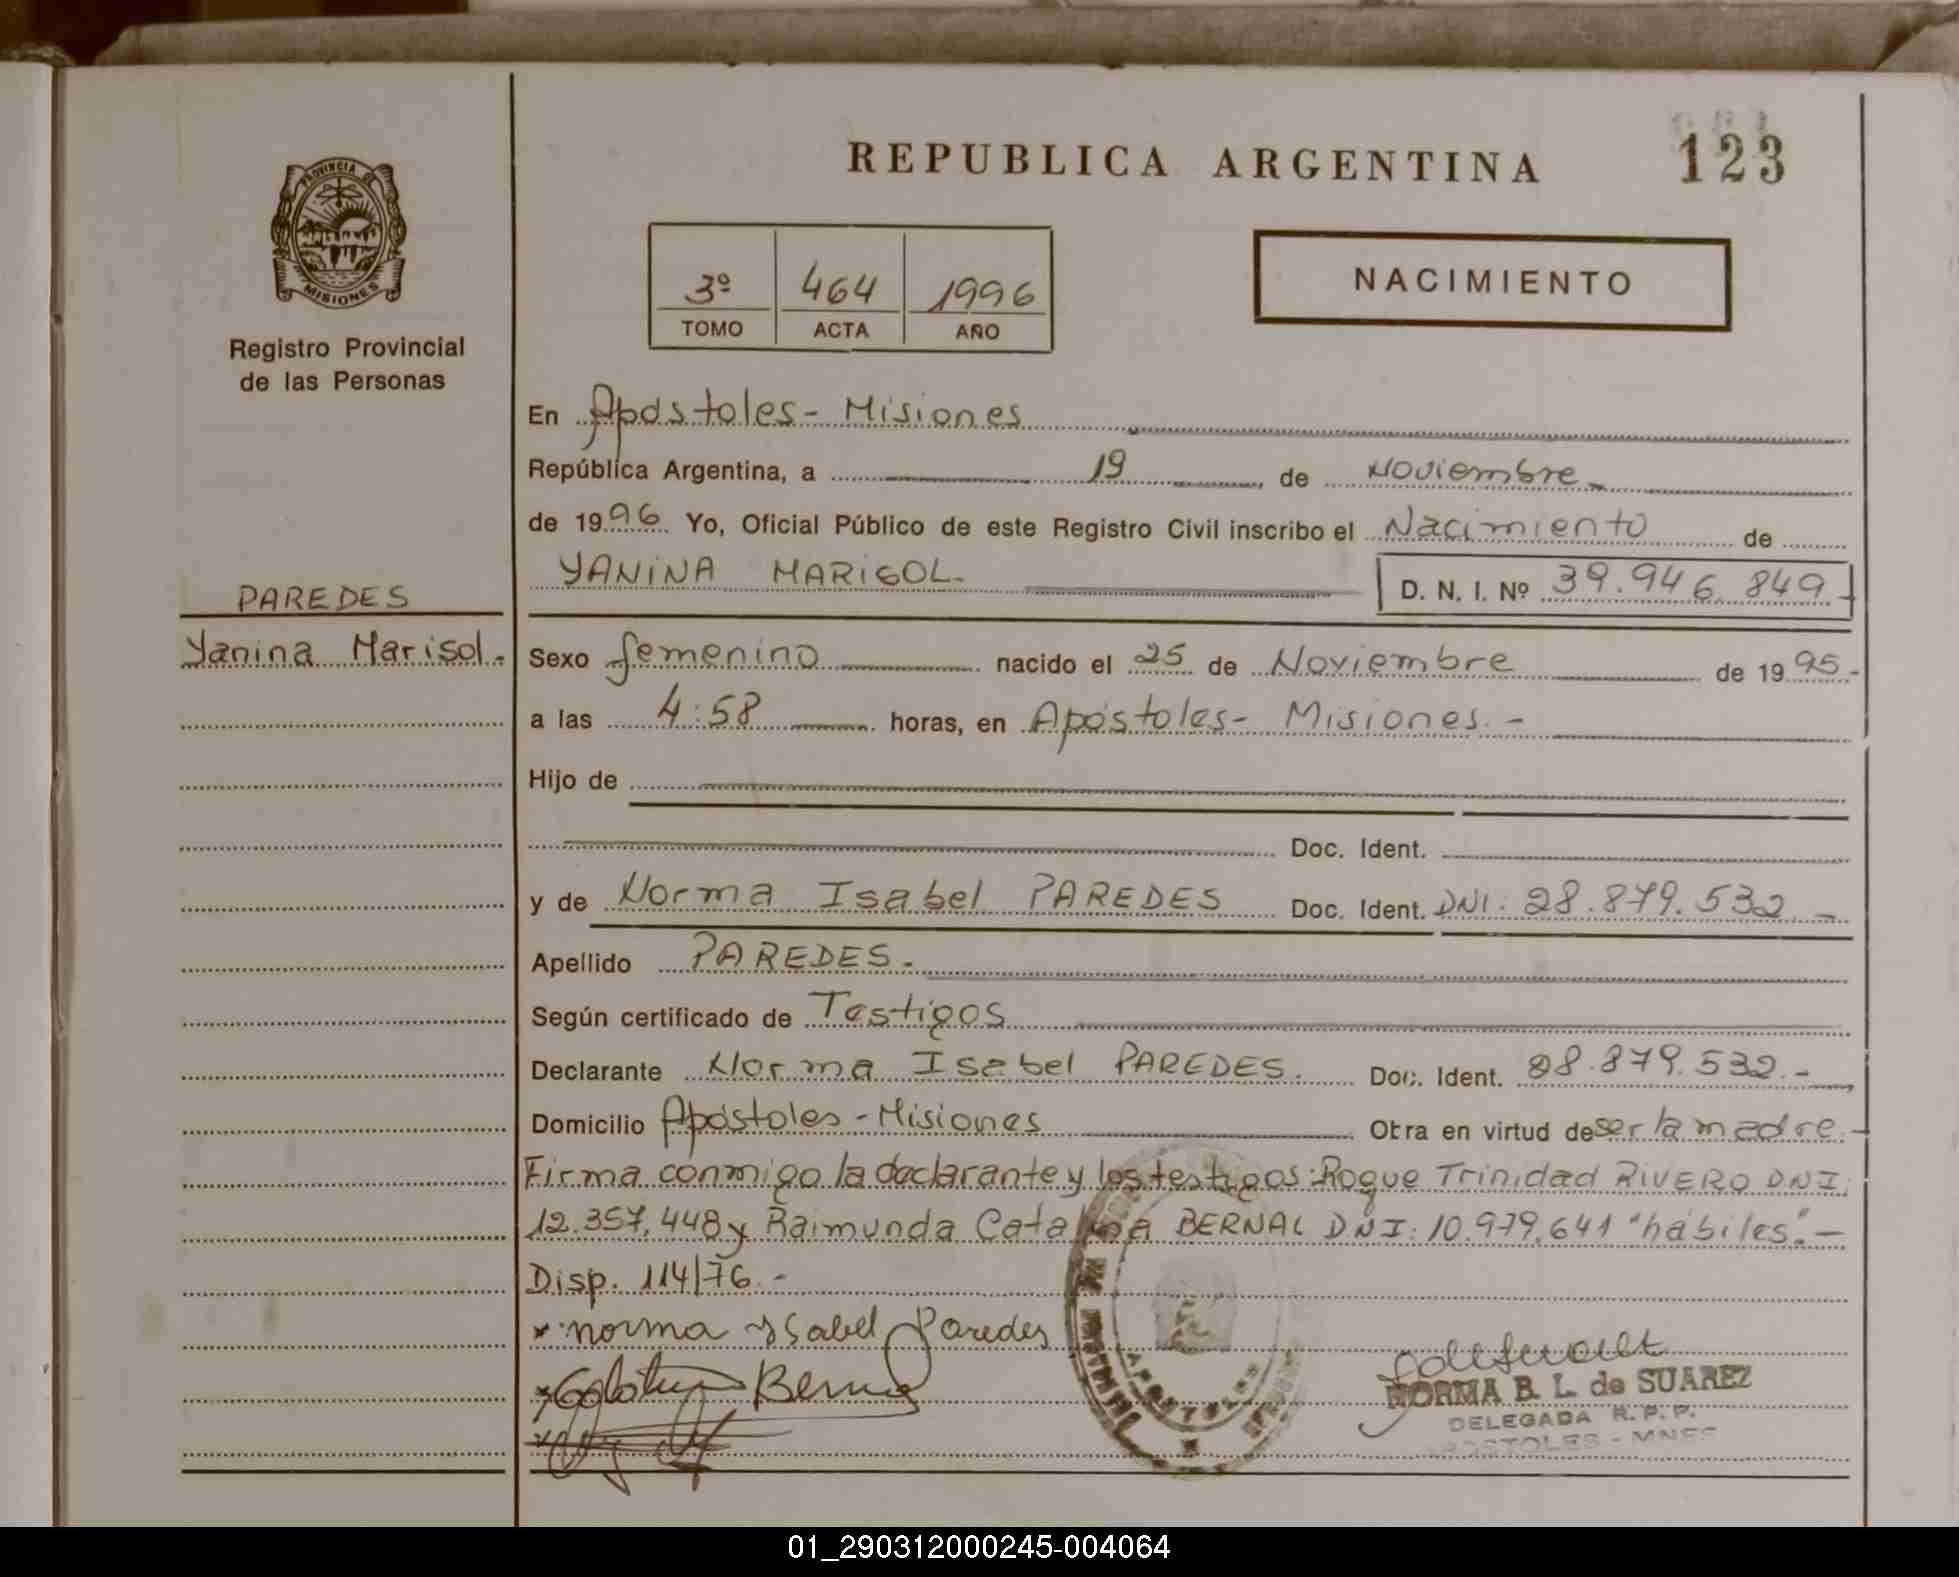 REPUBLICA ARGENTINA
123
PROVINCIA DE
MISIONES
Registro Provincial
de las Personas
3º 464 1996
TOMO ACTA AÑO
NACIMIENTO
En Apóstoles - Misiones
República Argentina, a 19 de Noviembre
de 1996 Yo, Oficial Público de este Registro Civil inscribo el Nacimiento de
YANINA MARISOL.- D. N. I. Nº 39.946.849
PAREDES
Yanina Marisol.-
Sexo femenino nacido el 25 de Noviembre de 1995.-
a las 4:58 horas, en Apóstoles - Misiones.-
Hijo de
Doc. Ident.
y de Norma Isabel PAREDES Doc. Ident. DNI: 28.879.532 -
Apellido PAREDES.-
Según certificado de Testigos
Declarante Norma Isabel PAREDES. Doc. Ident. 28.879.532.-
Domicilio Apóstoles - Misiones Obra en virtud de ser la madre.-
Firma conmigo la declarante y los testigos: Roque Trinidad RIVERO D.N.I.
12.357.448 y Raimunda Catalina BERNAL D.N.I: 10.979.641 "hábiles".-
Disp. 114/76.-
x norma Ysabel Paredes
NORMA B. L. de SUAREZ
DELEGADA R. P. P.
APOSTOLES - MNES
APOSTOLES
01_290312000245-004064